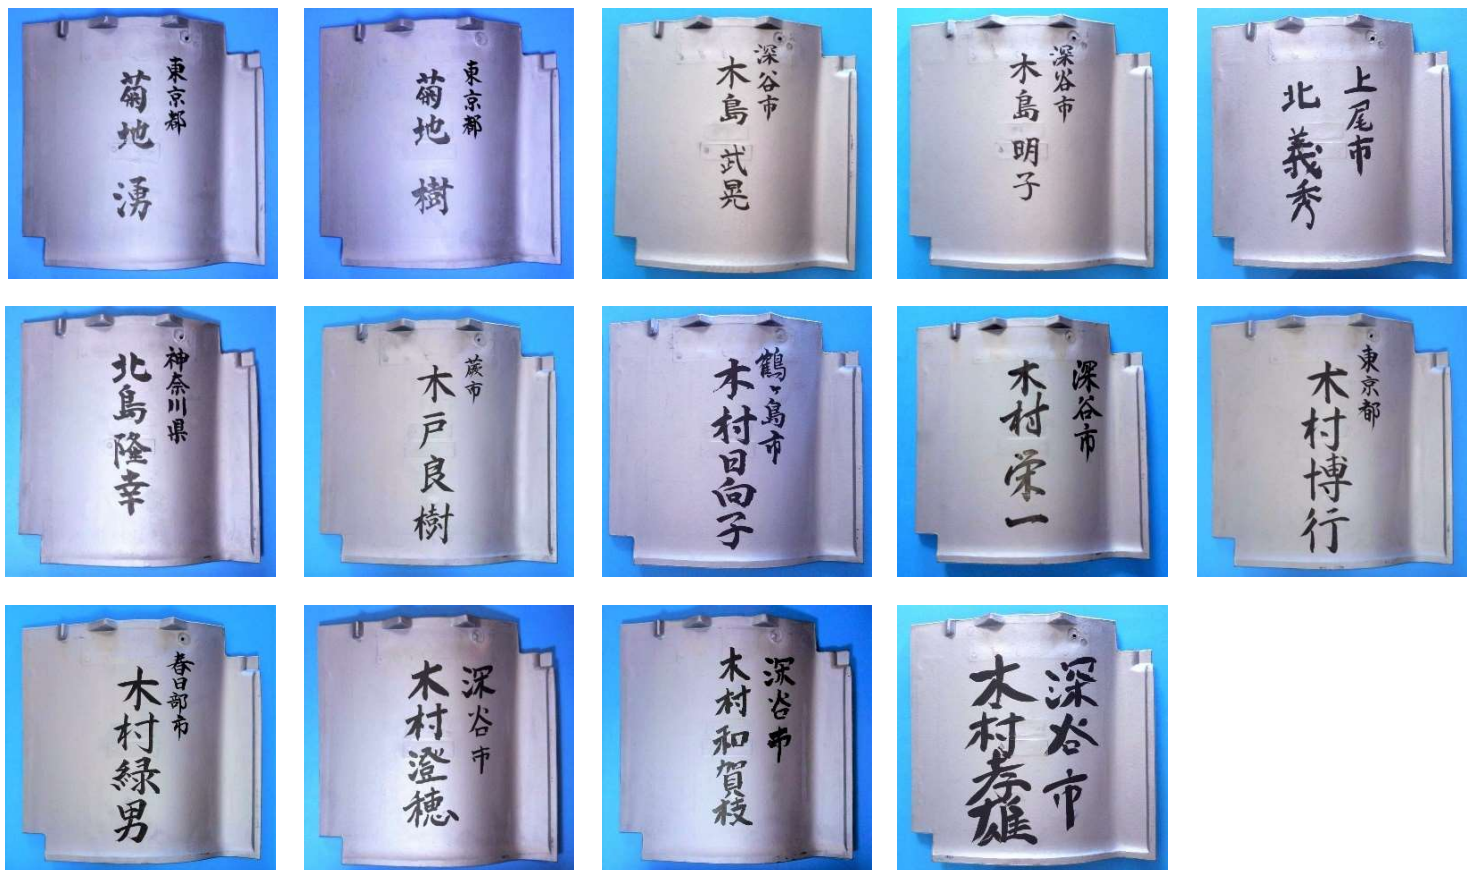 東京都
菊地 湧
東京都
菊地 樹
深谷市
木島 武晃
深谷市
木島 明子
上尾市
北 義秀
神奈川県
北島隆幸
蕨市
木戸良樹
鶴ヶ島市
木村日向子
深谷市
木村栄一
東京都
木村博行
春日部市
木村緑男
深谷市
木村澄穂
深谷市
木村和賀枝
深谷市
木村孝雄